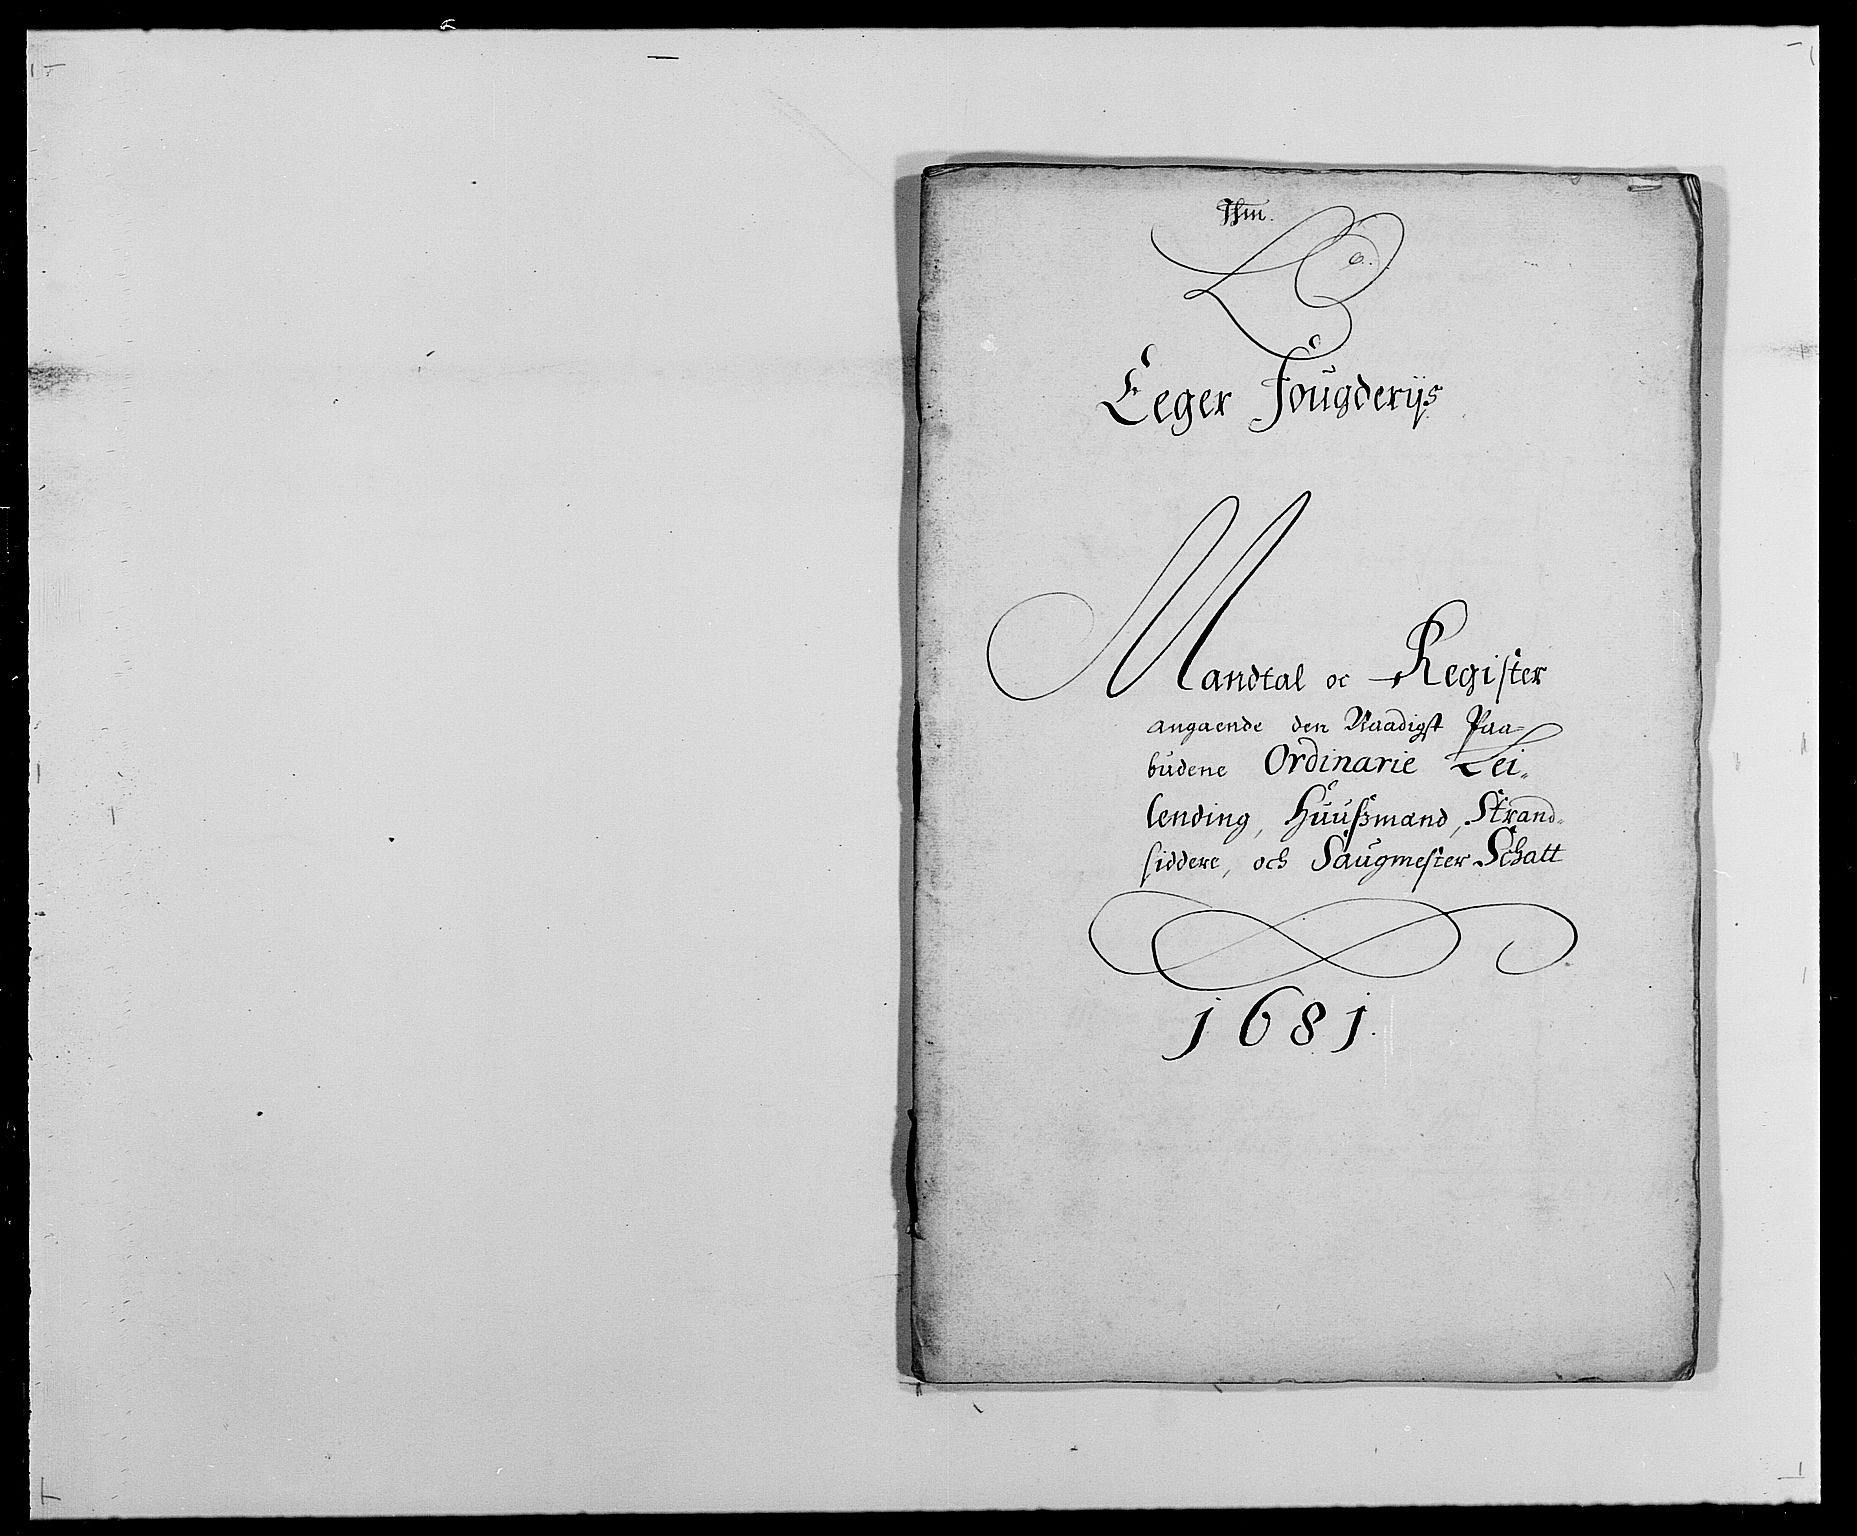 Eeger Fougderijs
Mandtal oc Register
angaende den Naadigst Paa-
budene Ordinarie Lei-
lending, Huusmænd, Strand-
siddere, och Saugmester Schatt
1681.